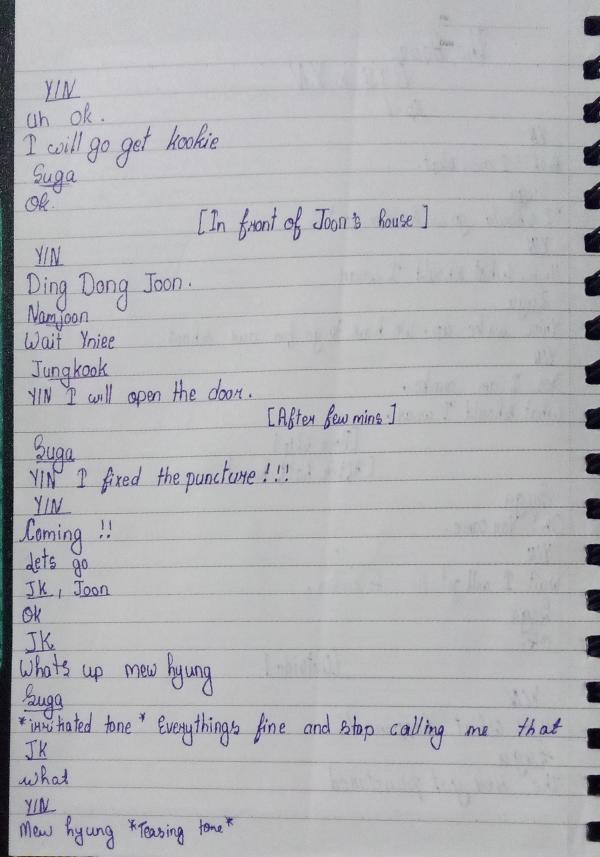 YIN
uh ok.
I will go get kookie
Suga
Ok.
[In front of Joon's house]
YIN
Ding Dong Joon.
Namjoon
Wait Yniee
Jungkook
YIN I will open the door.
[After few mins]
Suga
YIN I fixed the puncture!!!
YIN
Coming !!
Lets go
JK, Joon
Ok
JK
Whats up mew hyung
Suga
*irritiated tone* Everythings fine and stop calling me that
JK
what
YIN
Mew hyung *Teasing tone*